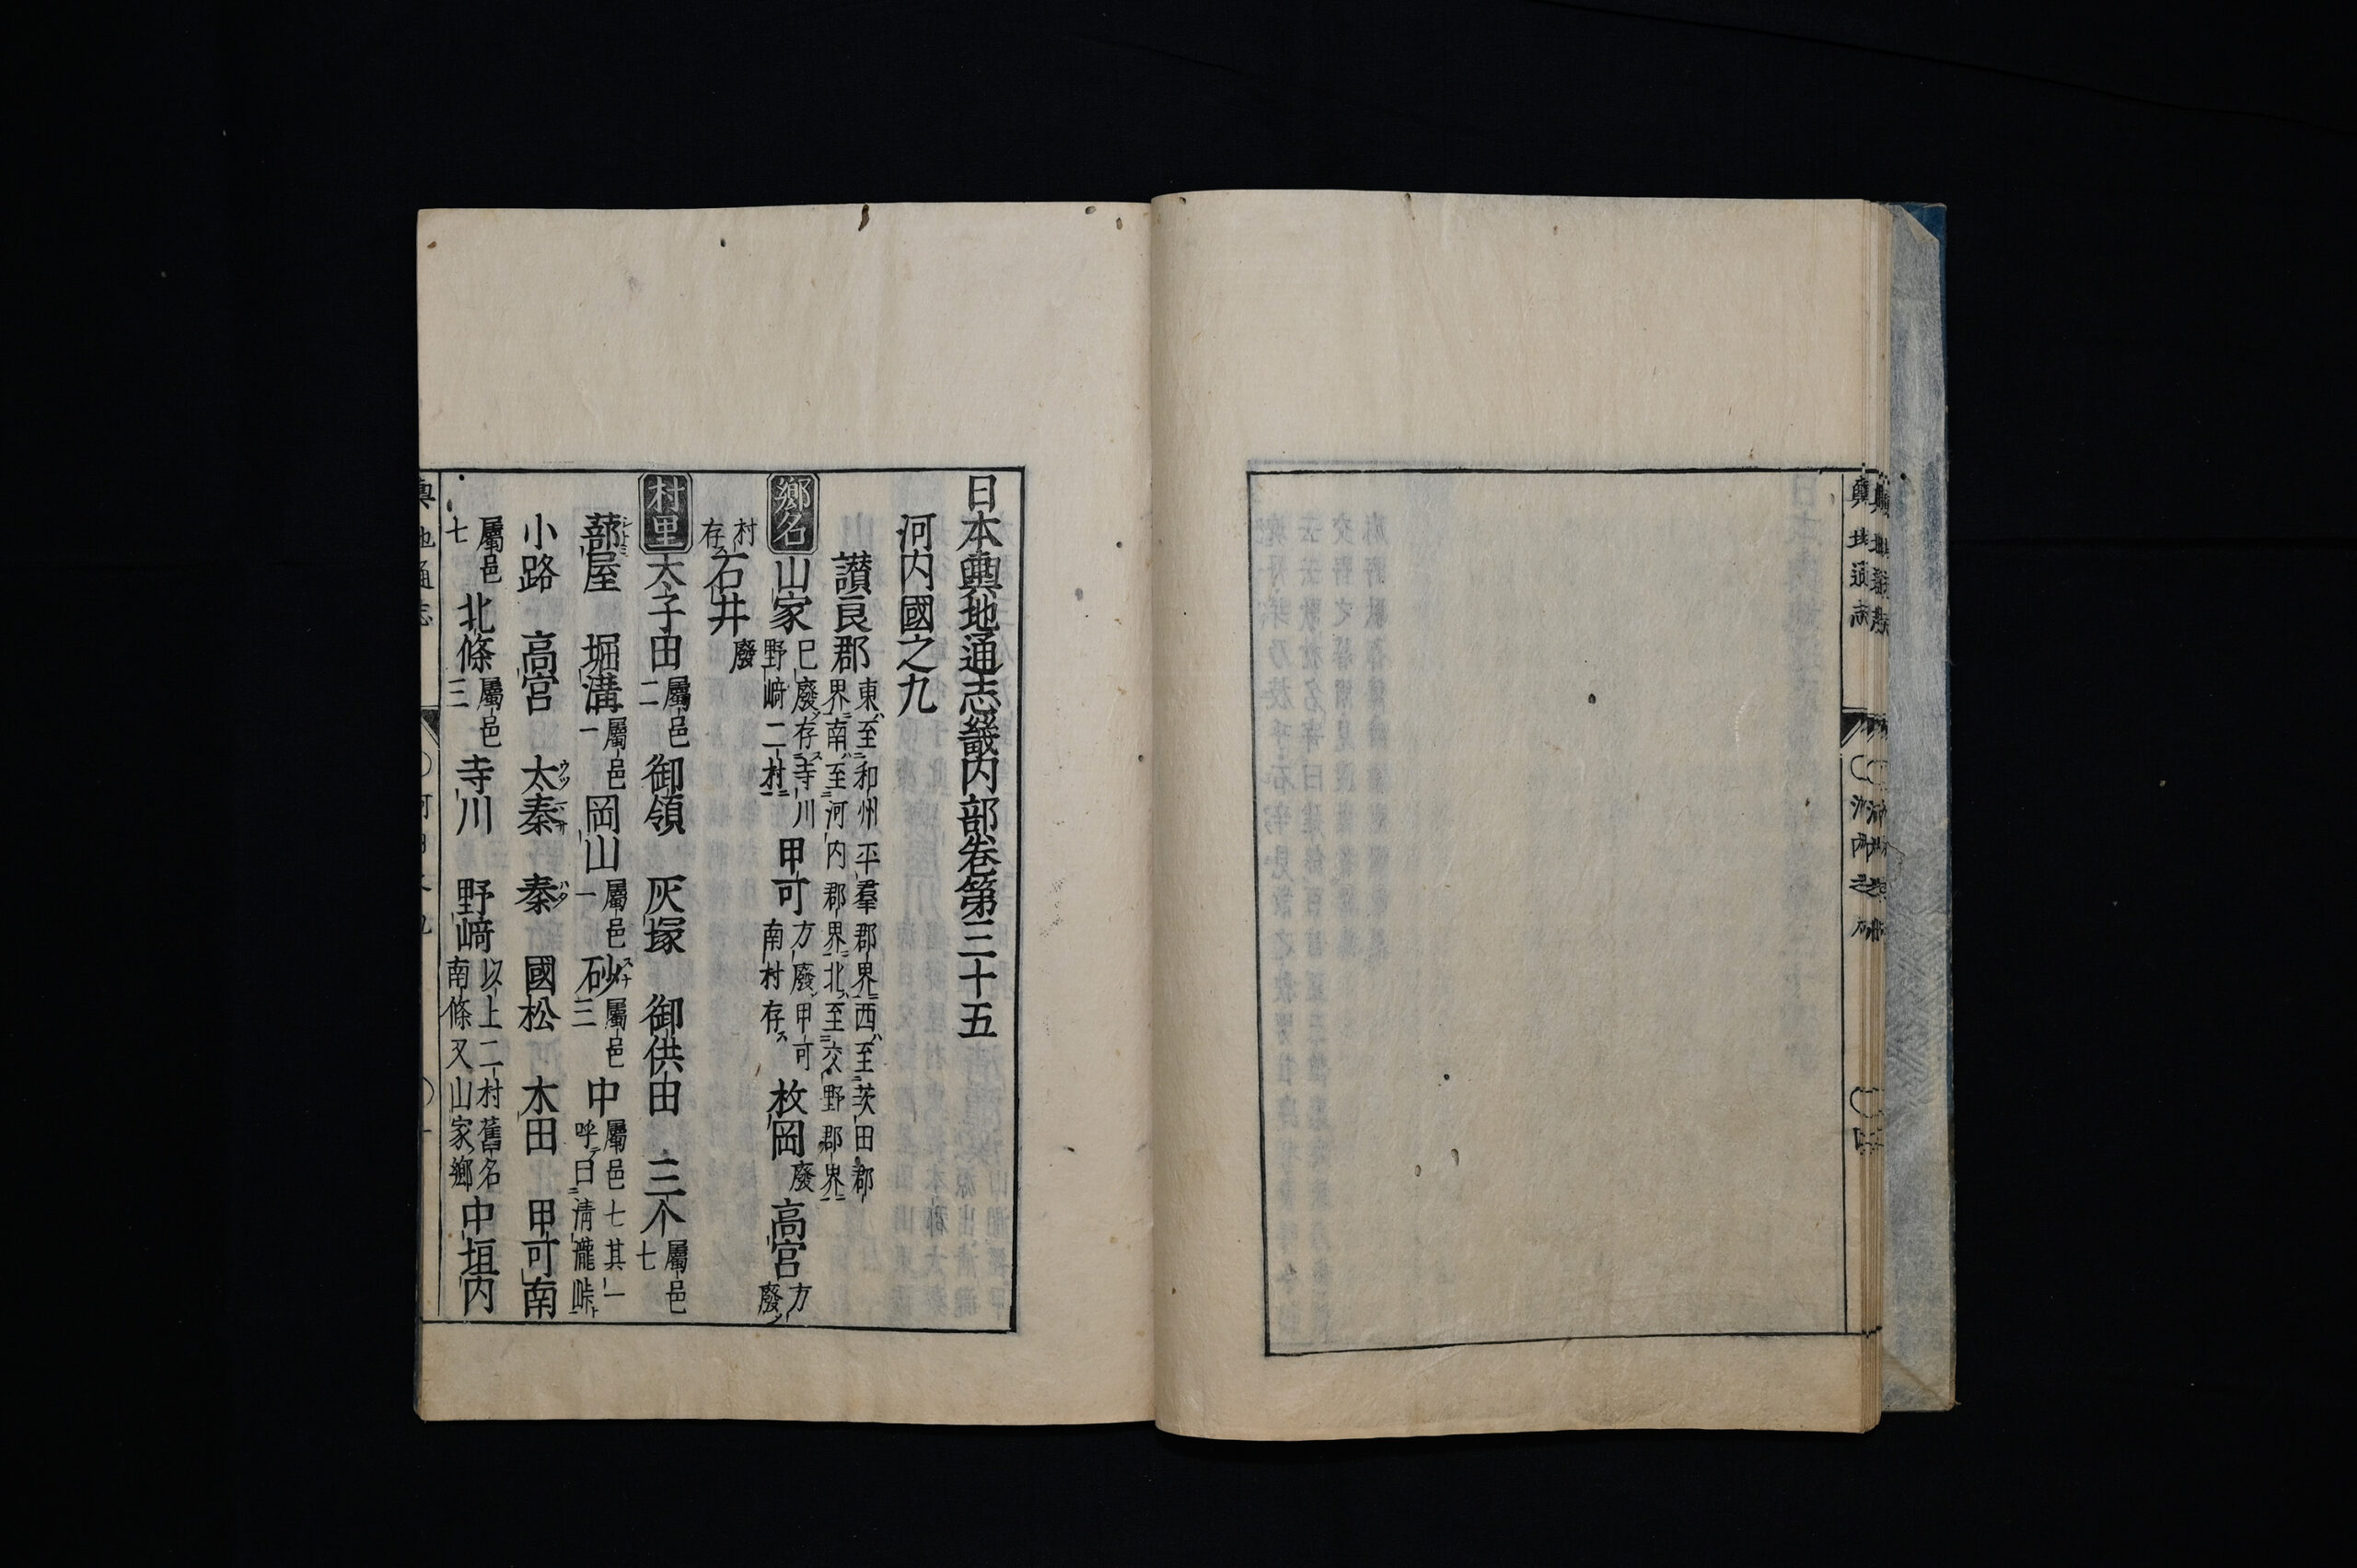 日本輿地通志畿内部卷第三十五
河内國之九
讃良郡 東ハ至二和州平羣郡界一西ハ至二茨田郡界一南ハ至二河内郡界一北ハ至二交野郡界一
鄉名 山家 巳廢ソ存ス二寺川野﨑二村一 甲可 方廢ソ甲可南村存ス 枚岡 廢 高宮 方廢ソ
村存ス 石井 廢
村里 太子田 屬邑二 御領 灰塚 御供田 三个 屬邑七
蔀屋 堀溝 屬邑一 岡山 屬邑一 砂 屬邑三 中 屬邑七其一呼テ曰二清瀧峠ト一
小路 高宮 太秦 秦 國松 木田 甲可南
屬邑七 北條 屬邑三 寺川 野﨑 以上二村舊名南條又山家鄉 中垣内